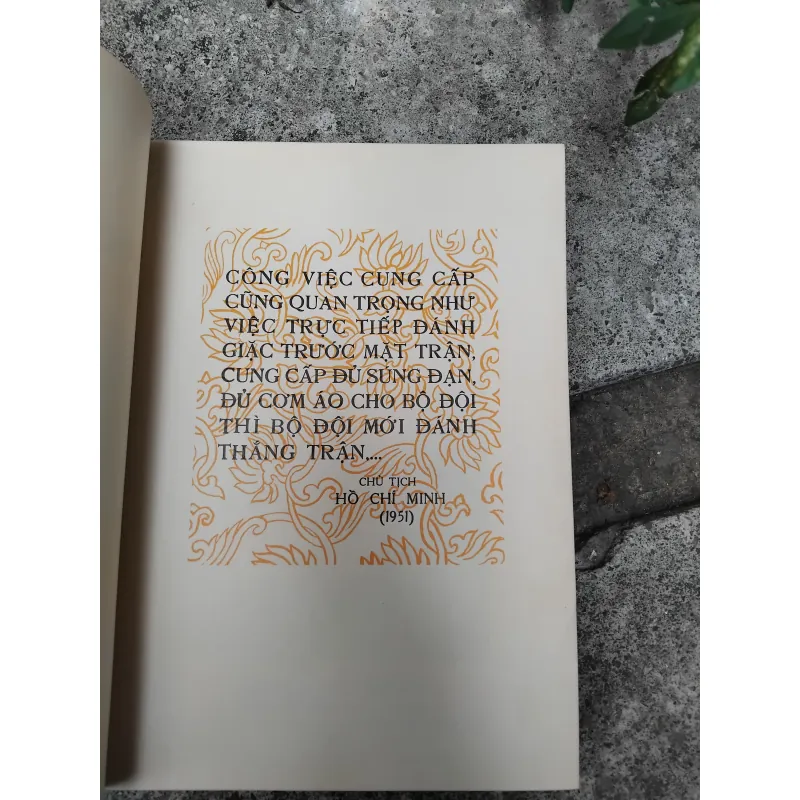 CÔNG VIỆC CUNG CẤP
CŨNG QUAN TRỌNG NHƯ
VIỆC TRỰC TIẾP ĐÁNH
GIẶC TRƯỚC MẶT TRẬN,
CUNG CẤP ĐỦ SÚNG ĐẠN,
ĐỦ CƠM ÁO CHO BỘ ĐỘI
THÌ BỘ ĐỘI MỚI ĐÁNH
THẮNG TRẬN,...
CHỦ TỊCH
HỒ CHÍ MINH
(1951)